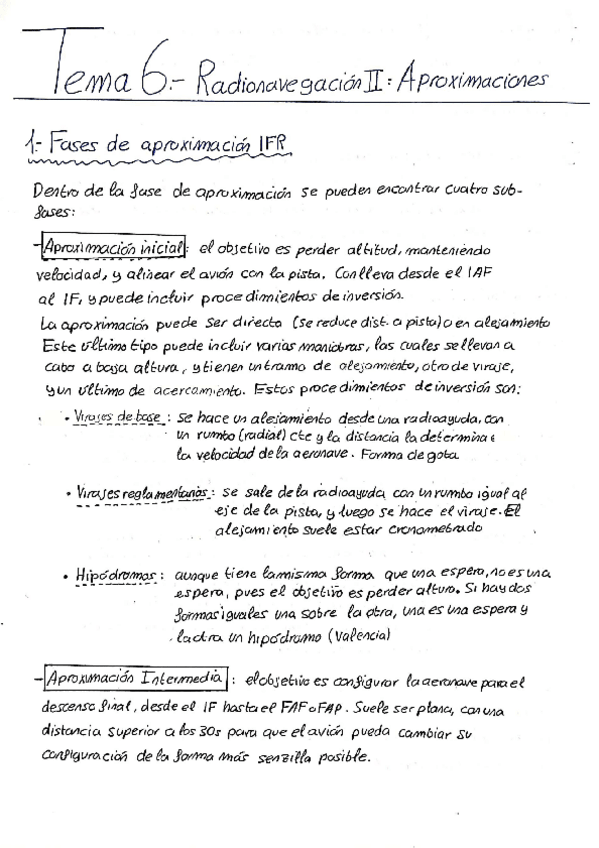 Tema 6.- Radionavegación II: Aproximaciones
1.- Fases de aproximación IFR
Dentro de la fase de aproximación se pueden encontrar cuatro sub-
fases:
- Aproximación inicial: el objetivo es perder altitud, manteniendo
velocidad, y alinear el avión con la pista. Conlleva desde el IAF
al IF, y puede incluir procedimientos de inversión.
La aproximación puede ser directa (se reduce dist. a pista) o en alejamiento
Este último tipo puede incluir varias maniobras, las cuales se llevan a
cabo a baja altura, y tienen un tramo de alejamiento, otro de viraje,
y un último de acercamiento. Estos procedimientos de inversión son:
• Virajes de base: se hace un alejamiento desde una radioayuda, con
un rumbo (radial) cte y la distancia la determina
la velocidad de la aeronave. Forma de gota
• Virajes reglamentarios: se sale de la radioayuda con un rumbo igual al
eje de la pista, y luego se hace el viraje. El
alejamiento suele estar cronometrado
• Hipódromos: aunque tiene la misma forma que una espera, no es una
espera, pues el objetivo es perder altura. Si hay dos
formas iguales una sobre la otra, una es una espera y
la otra un hipódromo (Valencia)
- Aproximación Intermedia: el objetivo es configurar la aeronave para el
descenso final, desde el IF hasta el FAF o FAP. Suele ser plana, con una
distancia superior a los 30s para que el avión pueda cambiar su
configuración de la forma más senzilla posible.